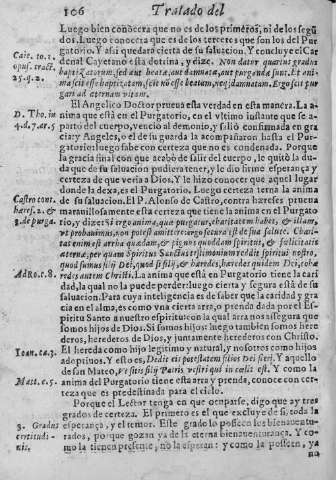 106 Tratado del
Luego bien conocera que no es de los primeros, ni de los segũ
dos. Luego conocera que es de los terceros que son los del Pur
gatorio. Y assi quedara cierta de su saluacion. Y concluye el Car
Caiet. to. 1. denal Cayetano esta dotrina, y dize. Non datur quartus gradus
opus. tract. baptizatorum, sed aut beatæ, aut damnatæ, aut purgandæ sunt. Et ani
25. q. 2. ma scit esse baptizatam, scit nõ esse beatam, neq; damnatam. Ergo scit pur
gandam æternam vitam.
El Angelico Doctor prueua esta verdad en esta manera. La a-
D. Tho. in nima que está en el Purgatorio, en el vltimo instante que se a
4. d. 7. ar. 5 partò del cuerpo, vencio al demonio, y saliò confirmada en gra
cia: y Angeles, o el de su guarda la acompañaron hasta el Pur-
gatorio: luego sabe con certeza que no es condenada. Porque
la gracia final con que acabò de salir del cuerpo, le quitò la du-
da que de su saluacion pudiera tener, y le dio firme esperança y
certeza de que veria a Dios. Y le hizo conocer que aquel lugar
donde la dexa, es el Purgatorio. Luego certeza terna la anima
Castro cont. de su saluacion. El P. Alonso de Castro, contra hæreses prueua
hæres. l. marauillosamente esta certeza que tiene la anima en el Purgato
3. de purga. rio, y dize: Si ergo anima, quæ purgatur, charitatem habet, & illam,
vt probauimus, non potest amittere: ergo secura est de sua salute. Chari-
tas enim est arrha quædam, & pignus quoddam spiritus, & fœlicitatis
æternæ, per quam Spiritus Sanctus testimonium reddit spiritui nostro,
quod sumus filij Dei, quod si filij, & hæredes, hæredes quidem Dei, cohæ
Ad Ro. c. 8. redes autem Christi. La anima que està en Purgatorio tiene la cari
dad, la qual no la puede perder: luego cierta y segura està de su sa
luacion. Para cuya inteligencia es de saber que la caridad y gra
cia en el alma, es como vna cierta arra, o prenda dada por el Es-
piritu Santo a nuestro espiritu: con la qual arra nos assegura que
somos hijos de Dios. Si somos hijos: luego tambien somos here
deros, herederos de Dios, y juntamente herederos con Christo.
El hereda como hijo legitimo y natural, y nosotros como hijos
Ioan. ca. 3. adoptiuos. Y esto es, Dedit eis potestatem filios Dei fieri. Y aquello
de san Mateo, Vt sitis filij Patris vestri qui in cœlis est. Y como la
Mat. c. 5. anima del Purgatorio tiene esta arra y prenda, conoce con cer-
teza que es predestinada para el cielo.
Porque el Lector tenga en que ocuparse, digo que ay tres
grados de certeza. El primero es el que excluye de si, toda la
3. Grados esperança, y el temor. Este grado lo posseen los bienauentu-
certitudi- rados, porque gozan ya de la eterna bienauenturança. Y co-
nis. mo la tienen presente, no la esperan: y como la posseen, ya
no